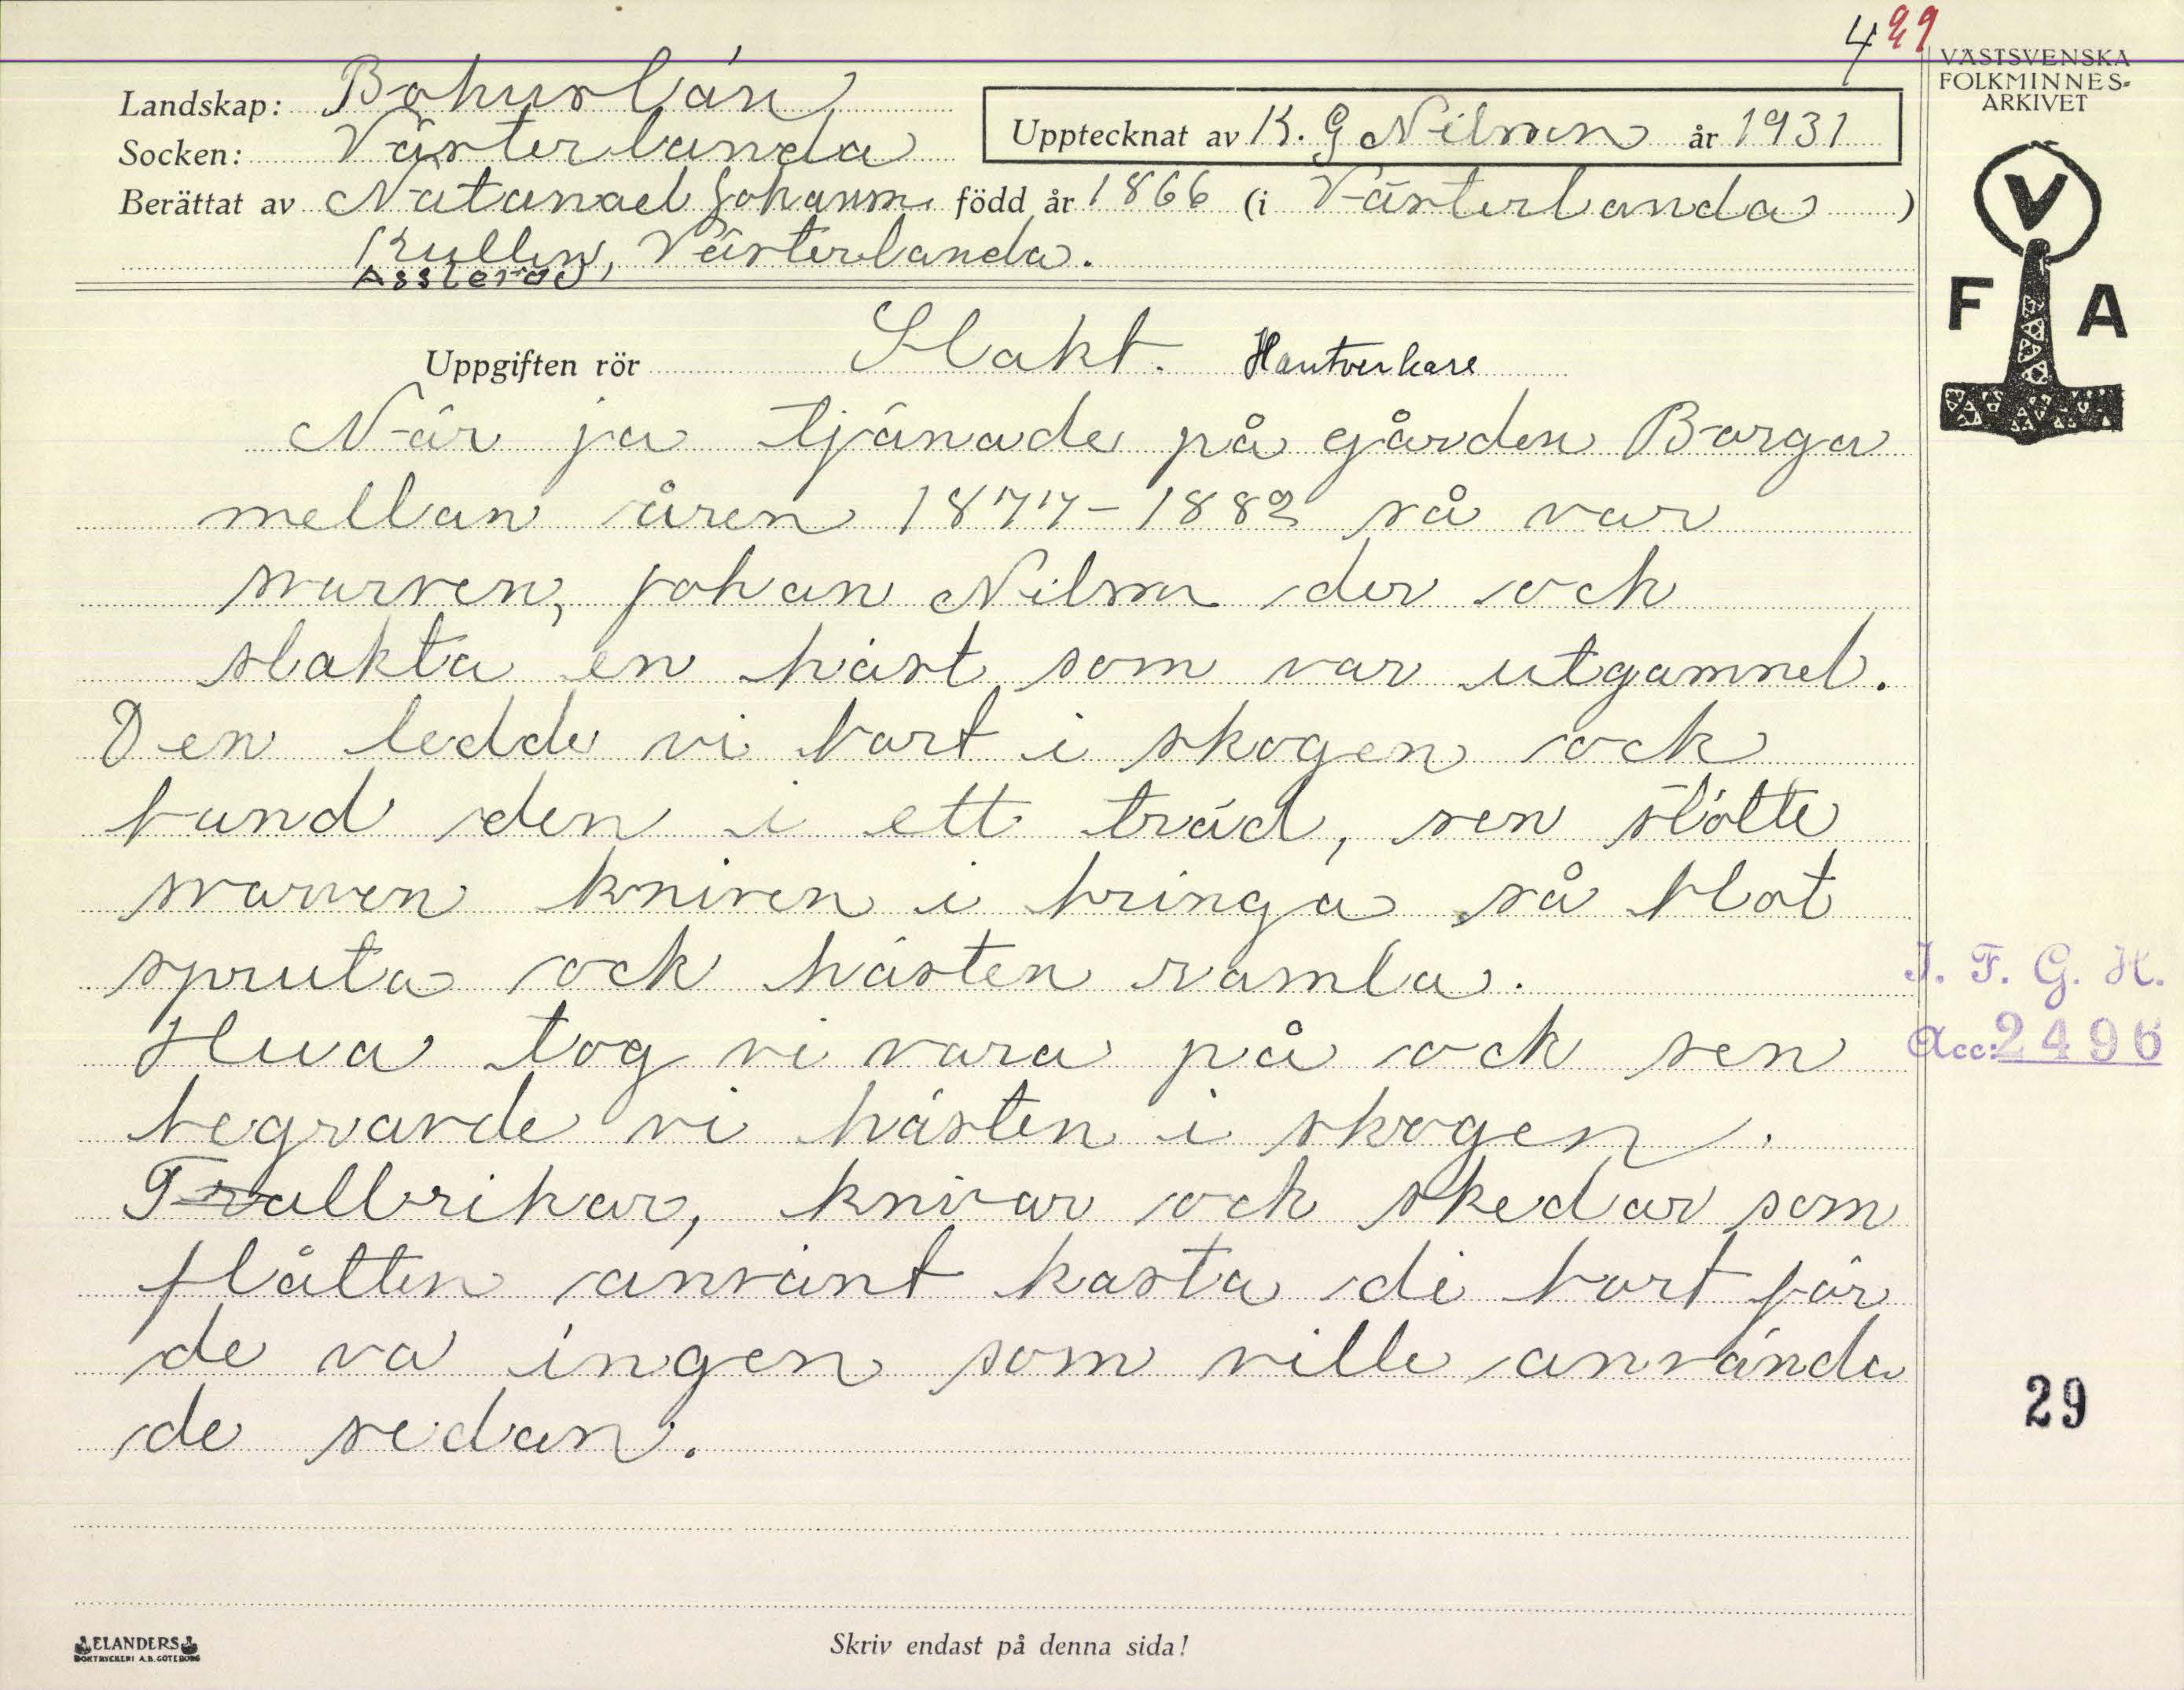 499
VÄSTSVENSKA
FOLKMINNES-
ARKIVET
Landskap: Bohuslän
Upptecknat av K. G Nilsson år 1931
Socken: Västerlanda
Berättat av Natanael Johansson född år 1866 (i Västerlanda)
Kullen, Västerlanda.
Assleröd
V
F A
Uppgiften rör Slakt. Hantverkare
När ja tjänade på gården Borga
mellan åren 1877-1882 så var
svarven, Johan Nilsson der och
slakta en häst som var utgammel.
Den ledde vi bort i skogen och
bund den i ett träd, sen stötte
svarven kniven i bringa så blot
spruta och hästen ramla.
Hua tog vi vara på och sen
begravde vi hästen i skogen.
Tallrikar, knivar och skedar som
flåtten använt kasta di bort för
de va ingen som ville använda
de sedan.
I. F. G. H.
Acc: 2496
29
ELANDERS
BOKTRYCKERI A.B. GÖTEBORG
Skriv endast på denna sida!